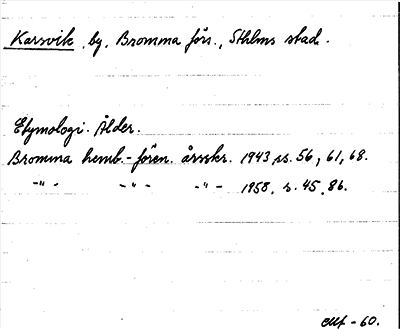 Karsvik, by, Bromma förs., Sthlms stad.
Etymologi. Ålder.
Bromma hemb.-fören. årsskr. 1943 s. 56, 61, 68.
-"- -"- -"- 1958, s. 45, 86.
-60.